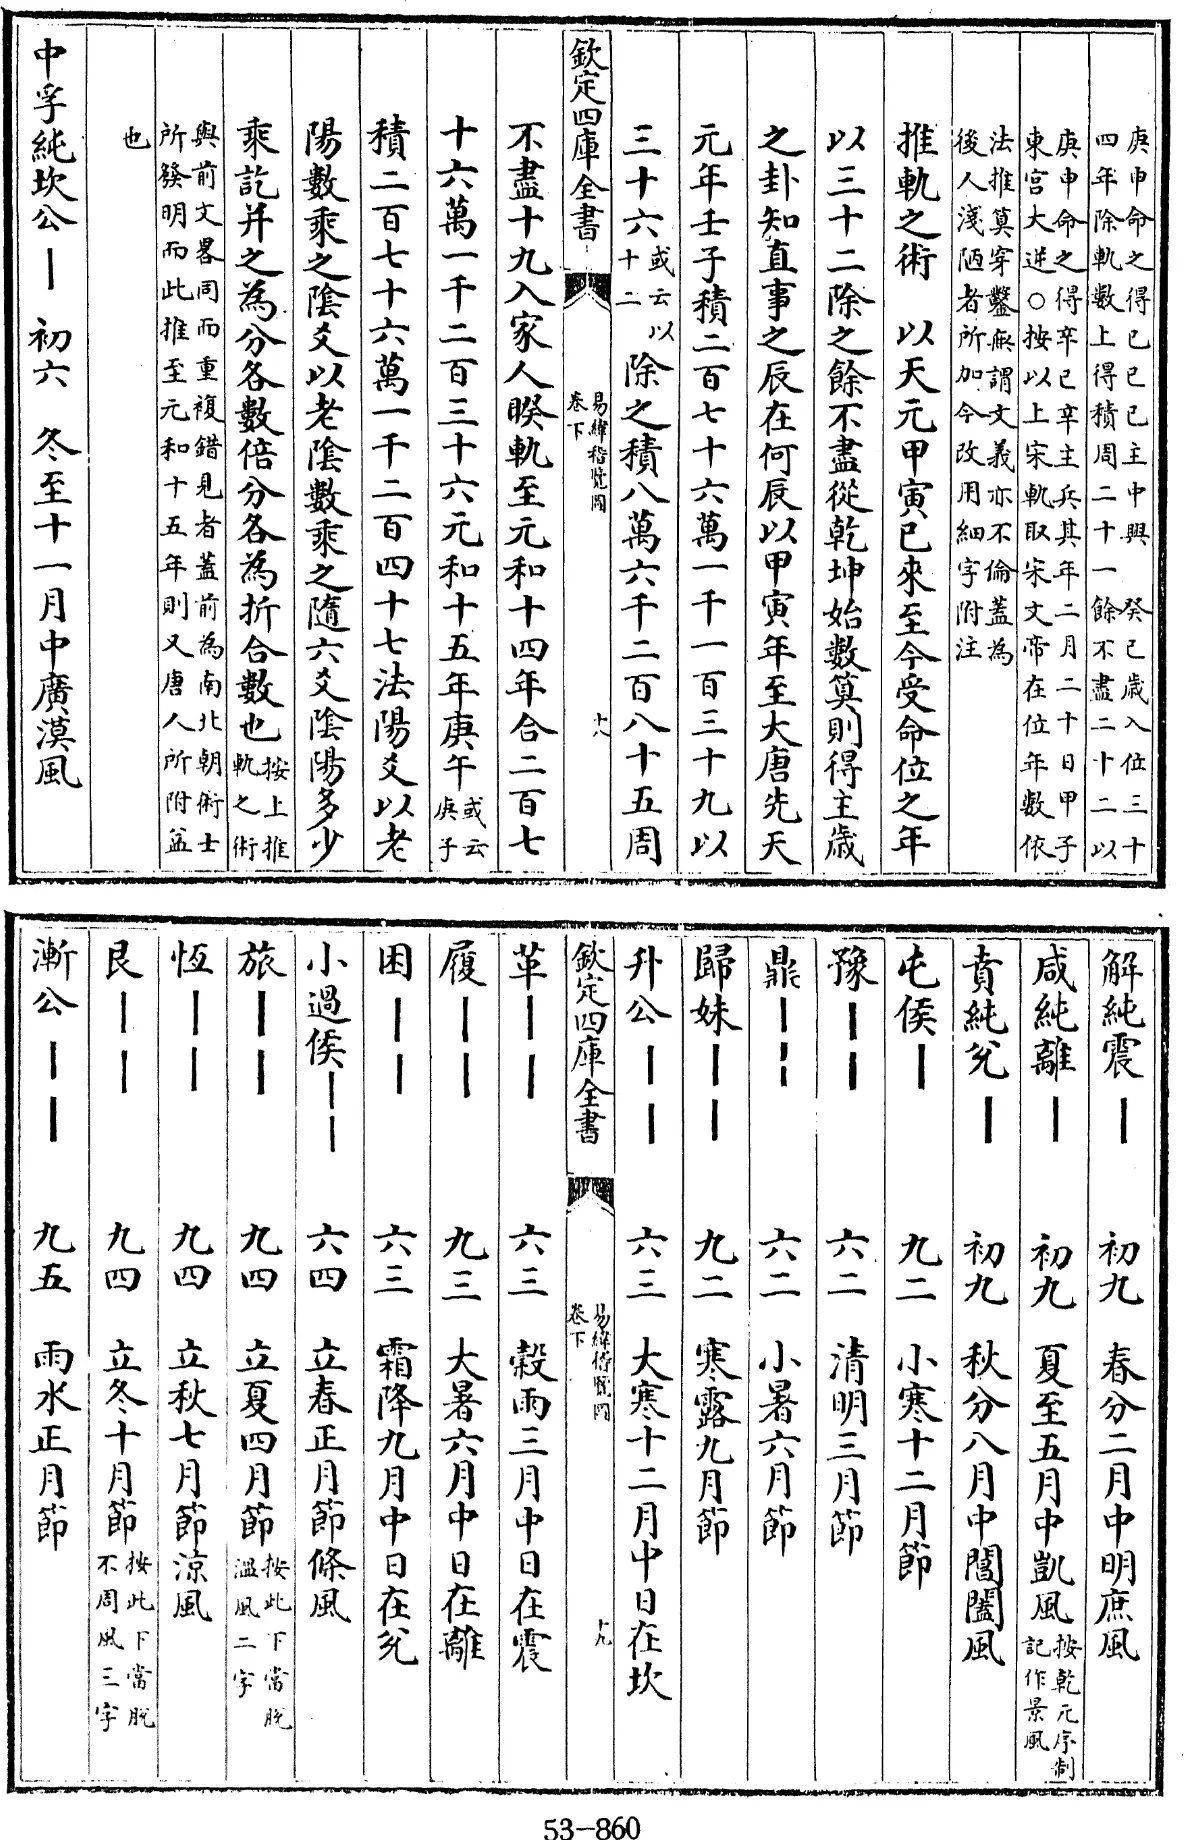 庚申命之得已巳巳主中興　癸已歲入位三十
四年除軌數上得積周二十一餘不盡二十二以
庚申命之得辛已辛主兵其年二月二十日甲子
東宮大逆○按以上宋軌取宋文帝在位年數依
法推算穿鑿無謂文義亦不倫蓋為
後人淺陋者所加今改用細字附注
推軌之術　以天元甲寅已來至今受命位之年
以三十二除之餘不盡從乾坤始數算則得主歲
之卦知直事之辰在何辰以甲寅年至大唐先天
元年壬子積二百七十六萬一千一百三十九以
三十六或云以十二除之積八萬六千二百八十五周
欽定四庫全書
易緯稽覽圖
卷下
十八
不盡十九入家人暌軌至元和十四年合二百七
十六萬一千二百三十六元和十五年庚午或云庚子
積二百七十六萬一千二百四十七法陽爻以老
陽數乘之陰爻以老陰數乘之隨六爻陰陽多少
乘訖并之為分各數倍分各為折合數也按上推軌之術
與前文畧同而重複錯見者蓋前為南北朝術士
所發明而此推至元和十五年則又唐人所附益
也
中孚純坎公｜　初六　冬至十一月中廣漠風
解純震｜　初九　春分二月中明庶風
咸純離｜　初九　夏至五月中凱風按乾元序制記作景風
賁純兌｜　初九　秋分八月中閶闔風
屯侯｜　九二　小寒十二月節
豫｜｜　六二　清明三月節
鼎｜｜　六二　小暑六月節
歸妹｜｜　九二　寒露九月節
升公｜｜　六三　大寒十二月中日在坎
欽定四庫全書
易緯稽覽圖
卷下
十九
革｜｜　六三　穀雨三月中日在震
履｜｜　九三　大暑六月中日在離
困｜｜　六三　霜降九月中日在兌
小過侯｜｜　六四　立春正月節條風
旅｜｜　九四　立夏四月節按此下當脫溫風二字
恆｜｜　九四　立秋七月節涼風
艮｜｜　九四　立冬十月節按此下當脫不周風三字
漸公｜｜　九五　雨水正月節
53-860